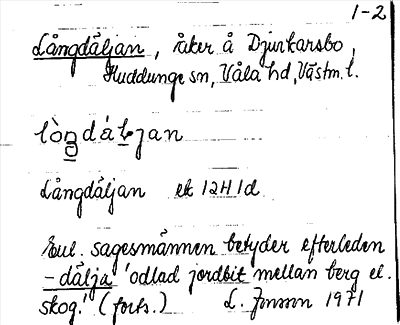 1-2
Långdåljan, åker å Djurkarsbo,
Huddunge sn, Våla hd, Västm. l.
Långdåljan ek 12H 1d
Enl. sagesmannen betyder efterleden
-dålja 'odlad jordbit mellan berg el.
skog.' (forts.) L. Jonsson 1971